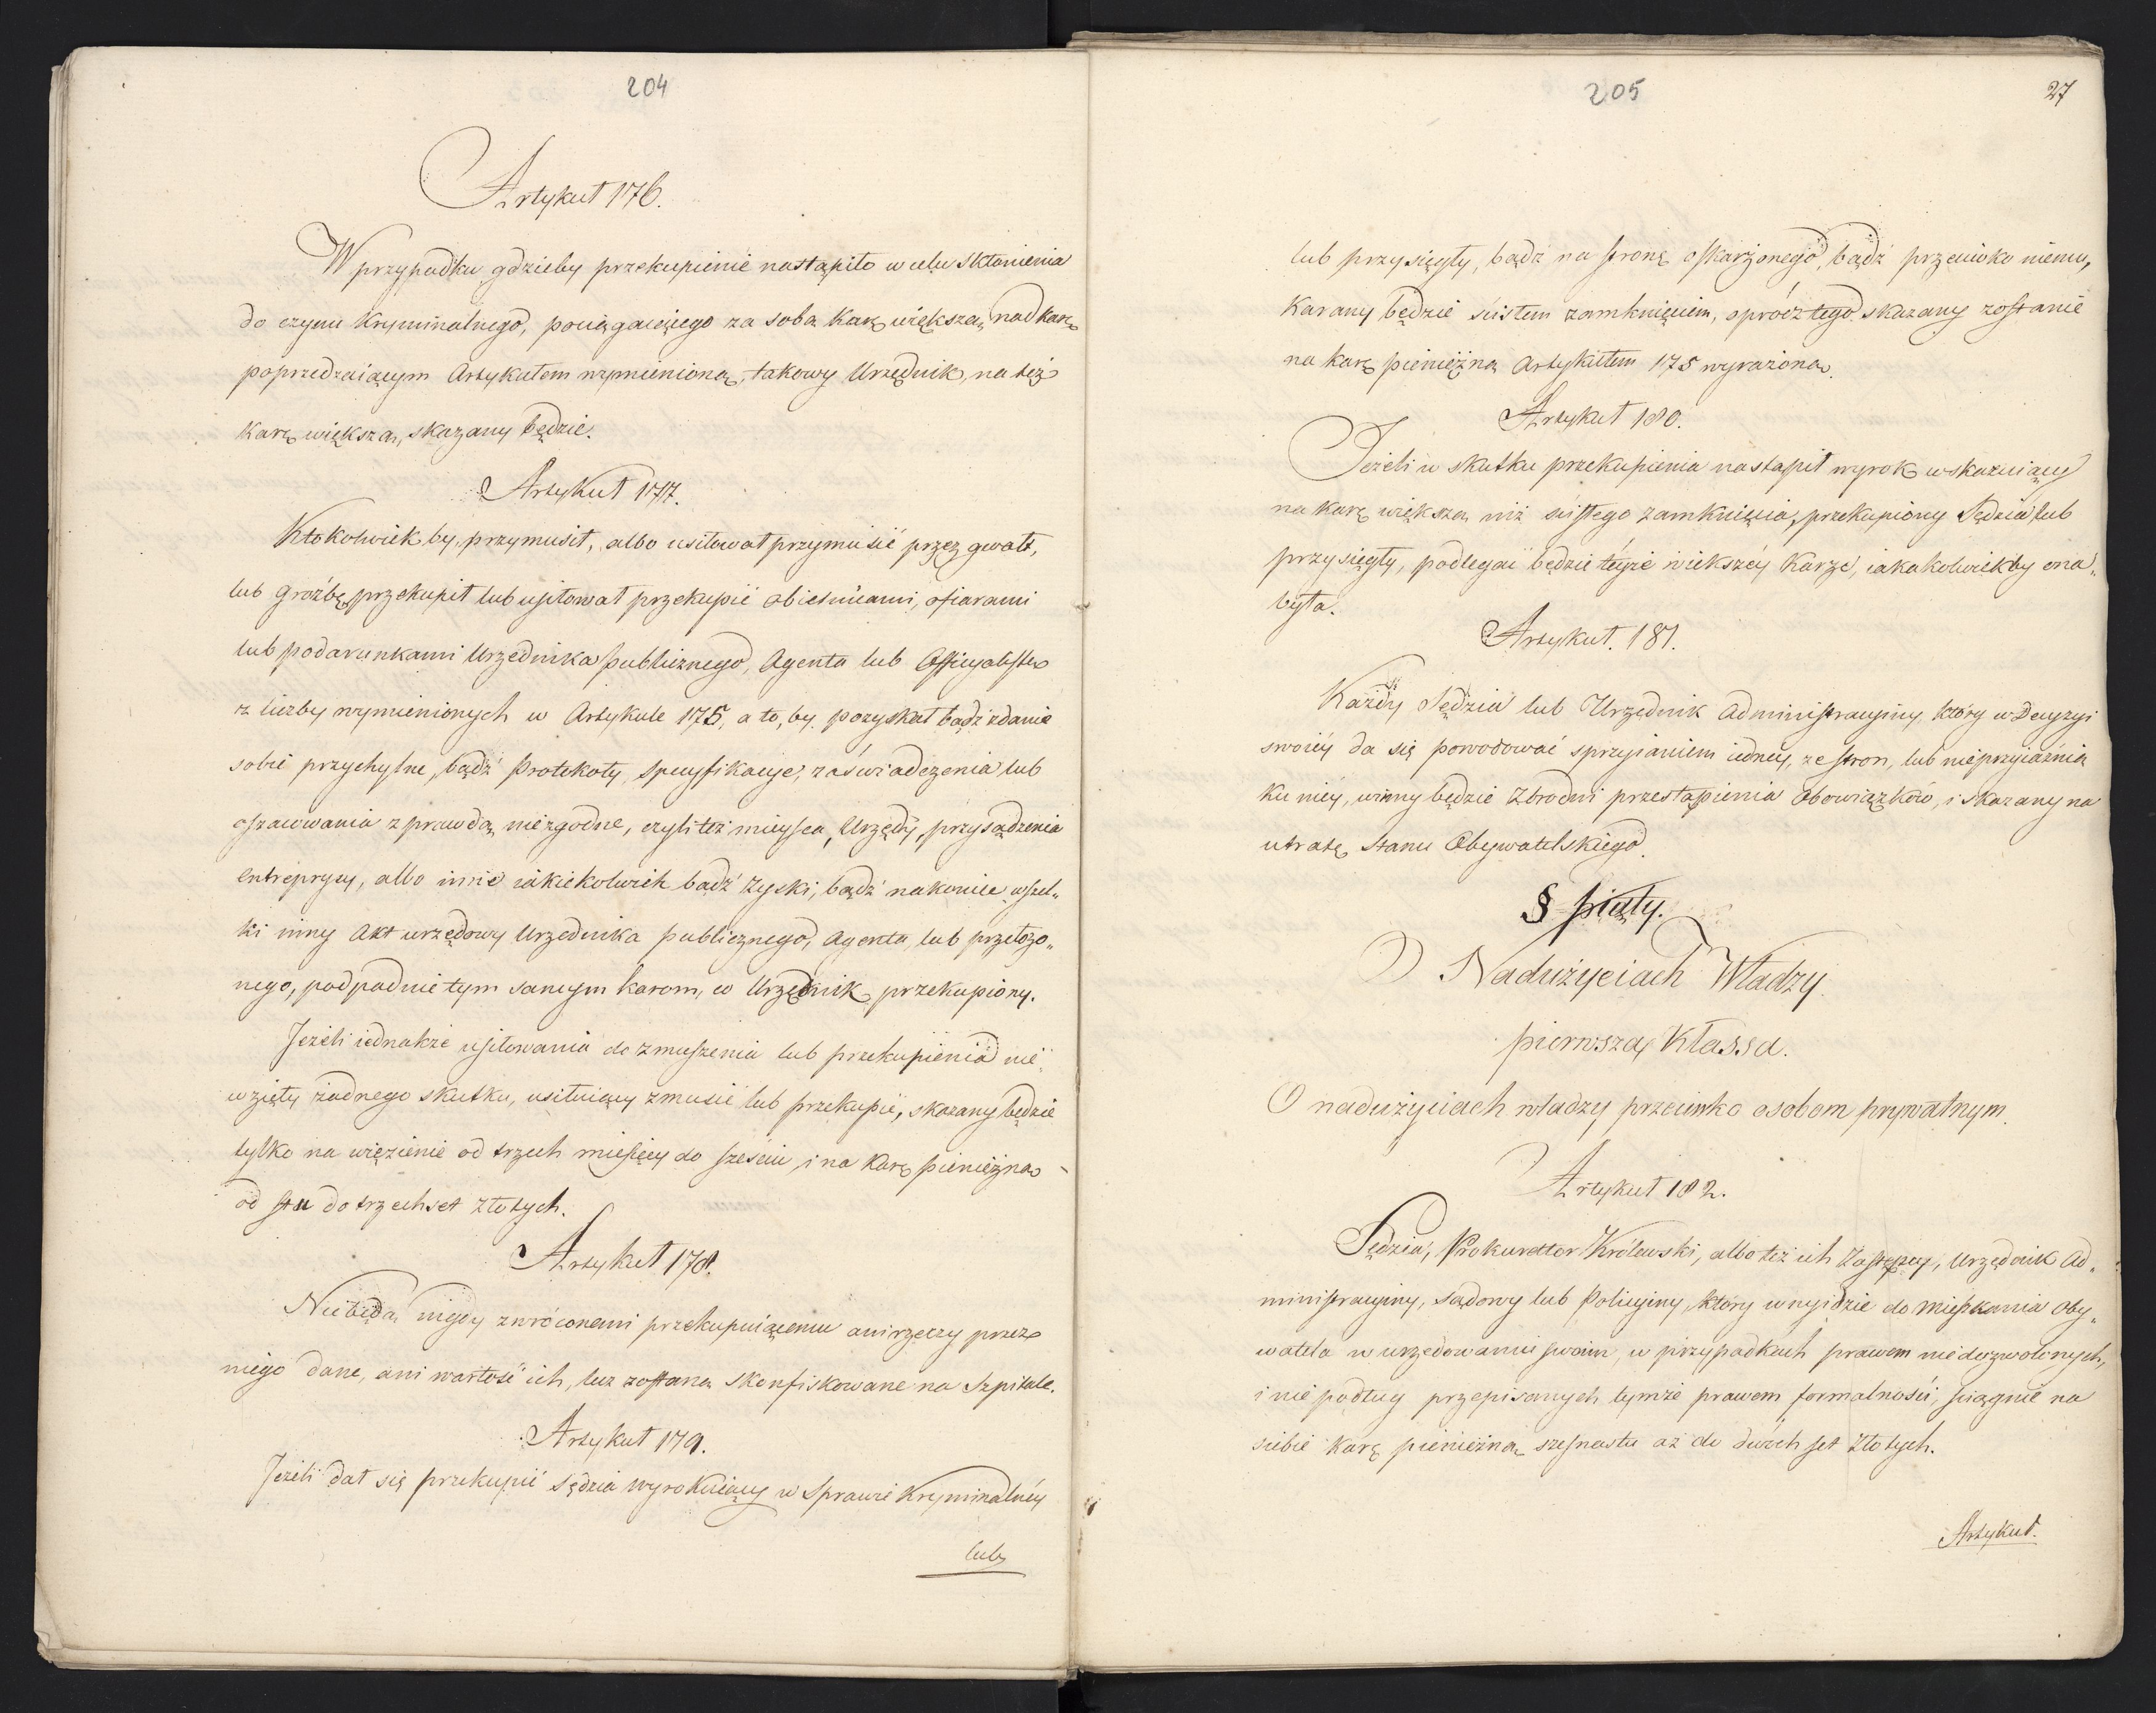 204
Artykuł 176.
W przypadku gdzieby przekupienie nastąpiło w celu skłonienia
do czynu kryminalnego, pociągaiącego za sobą karę większą, nad karę
poprzedzaiącym Artykułem wymienioną, takowy Urzędnik, na też
karę większą, skazany będzie.
Artykuł 177.
Ktokolwiek by, przymusił, albo usiłował przymusić przez gwałt,
lub groźbę, przekupił lub usiłował przekupić obietnicami, ofiarami
lub podarunkami Urzędnika publicznego, Agenta lub Officyalistę
z liczby wymienionych w Artykule 175, a to, by pozyskał bądź zdanie
sobie przychylne, bądź Protokoły, specyfikacye, zaświadczenia lub
oszacowania z prawdą niezgodne, czyli też mieysca, Urzędy, przysądzenia
entrepryzy, albo inne iakiekolwiek bądź zyski, bądź nakoniec wszel„
ki inny Akt urzędowy Urzędnika publicznego, Agenta, lub przełożo„
nego, podpadnie tym samym karom, co Urzędnik przekupiony.
Jeżeli iednakże usiłowania do zmuszenia lub przekupienia nie
wzięły żadnego skutku, usiłuiący zmusić lub przekupić, skazany będzie
tylko na więzienie od trzech miesięcy do sześciu, i na karę pieniężną
od stu do trzechset złotych.
Artykuł 178.
Nie będą nigdy zwróconemi przekupuiącemu ani rzeczy przez
niego dane, ani wartość ich, lecz zostaną skonfiskowane na Szpitale.
Artykuł 179.
Jeżeli dał się przekupić Sędzia wyrokuiący w Sprawie Kryminalnéy
lub
205
27
lub przysięgły, bądź na stronę oskarżonego, bądź przeciwko niemu,
karany będzie ścisłem zamknięciem, oprócz tego skazany zostanie
na karę pieniężną Artykułem 175 wyrażoną.
Artykuł 180.
Jeżeli w skutku przekupienia nastąpił wyrok wskazuiący
na karę większą niż ścisłego zamknięcia, przekupiony Sędzia lub
przysięgły, podlegać będzie téyże większéy karze, iakakolwiekby ona„
była.
Artykuł. 181.
Każdy Sędzia lub Urzędnik Administracyiny, który w Decyzyi
swoiéy da się powodować sprzyianiem iednéy, ze stron, lub nieprzyiaźnią
ku niéy, winny będzie Zbrodni przestąpienia Obowiązków, i skazany na
utratę stanu Obywatelskiego.
§ piąty.
O Nadużyciach Władzy.
pierwsza Klassa.
O nadużyciach władzy przeciwko osobom prywatnym.
Artykuł 182.
Sędzia, Prokurator Królewski, albo też ich Zastępcy, Urzędnik Ad„
ministracyiny, sądowy lub Policyiny, który wnyidzie do mieszkania Oby„
watela w urzędowaniu swoim, w przypadkach prawem niedozwolonych,
i nie podług przepisanych tymże prawem formalności, ściągnie na
siebie karę pieniężną szesnastu aż do dwóch set Złotych.
Artykuł.